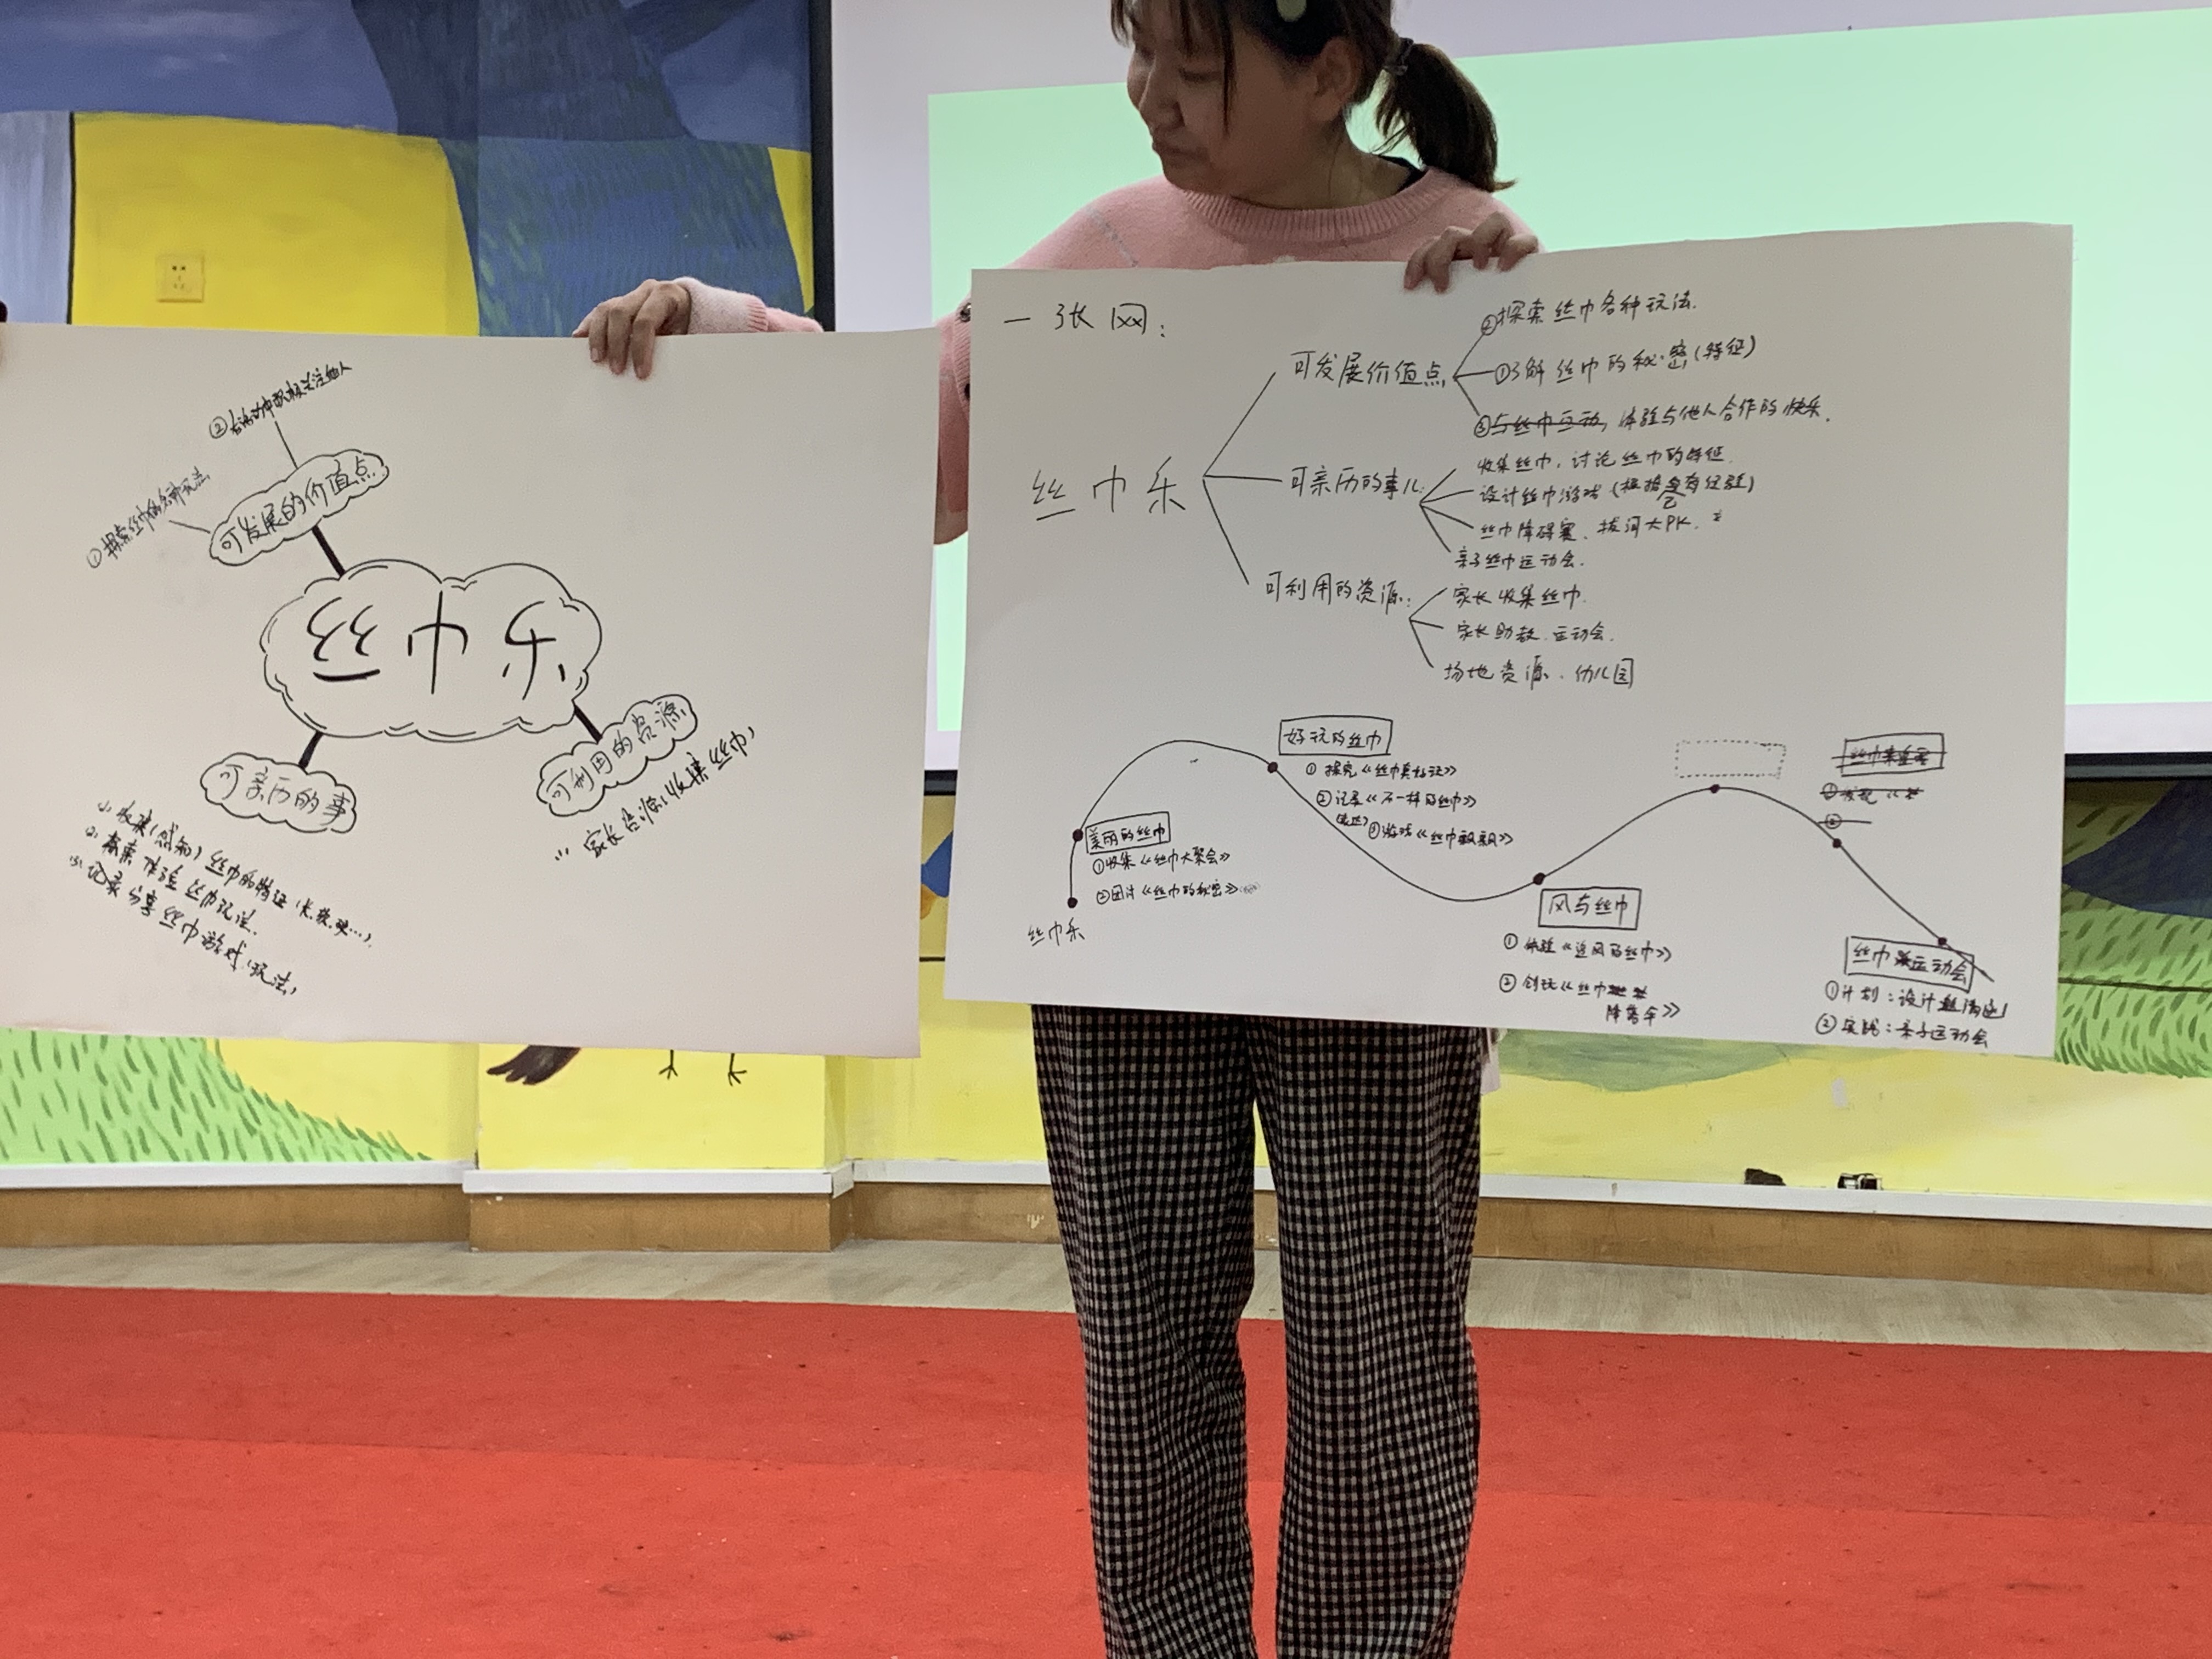 ②在活动中积极关注他人
①探索丝巾的各种玩法
可发展的价值点
丝巾乐
可利用的资源
家长资源:收集丝巾
可亲历的事
收集(感知)丝巾的特征
探索体验丝巾玩法.
记录分享丝巾游戏(玩法)
一张网:
丝巾乐
可发展价值点
②探索丝巾各种玩法.
①了解丝巾的秘密(特征)
③与丝巾互动,体验与他人合作的快乐.
可亲历的事儿:
收集丝巾,讨论丝巾的特征.
设计丝巾游戏(根据已有经验)
丝巾障碍赛、拔河大PK.
亲子丝巾运动会.
可利用的资源:
家长收集丝巾.
家长助教.运动会.
场地资源.幼儿园
丝巾乐
美丽的丝巾
①收集《丝巾大聚会》
②团讨《丝巾的秘密》
好玩的丝巾
①探究《丝巾真好玩》
②记录《不一样的丝巾》
③游戏《丝巾飘飘》
风与丝巾
①体验《追风的丝巾》
②创玩《丝巾
降落伞》
丝巾运动会
①计划:设计邀请函
②实践:亲子运动会